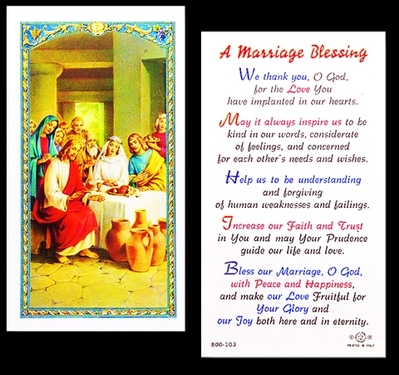 A Marriage Blessing
We thank you, O God,
for the Love You
have implanted in our hearts.
May it always inspire us to be
kind in our words, considerate
of feelings, and concerned
for each other's needs and wishes.
Help us to be understanding
and forgiving
of human weaknesses and failings.
Increase our Faith and Trust
in You and may Your Prudence
guide our life and love.
Bless our Marriage, O God,
with Peace and Happiness,
and make our Love Fruitful for
Your Glory and
our Joy both here and in eternity.
800-103
PRINTED IN ITALY